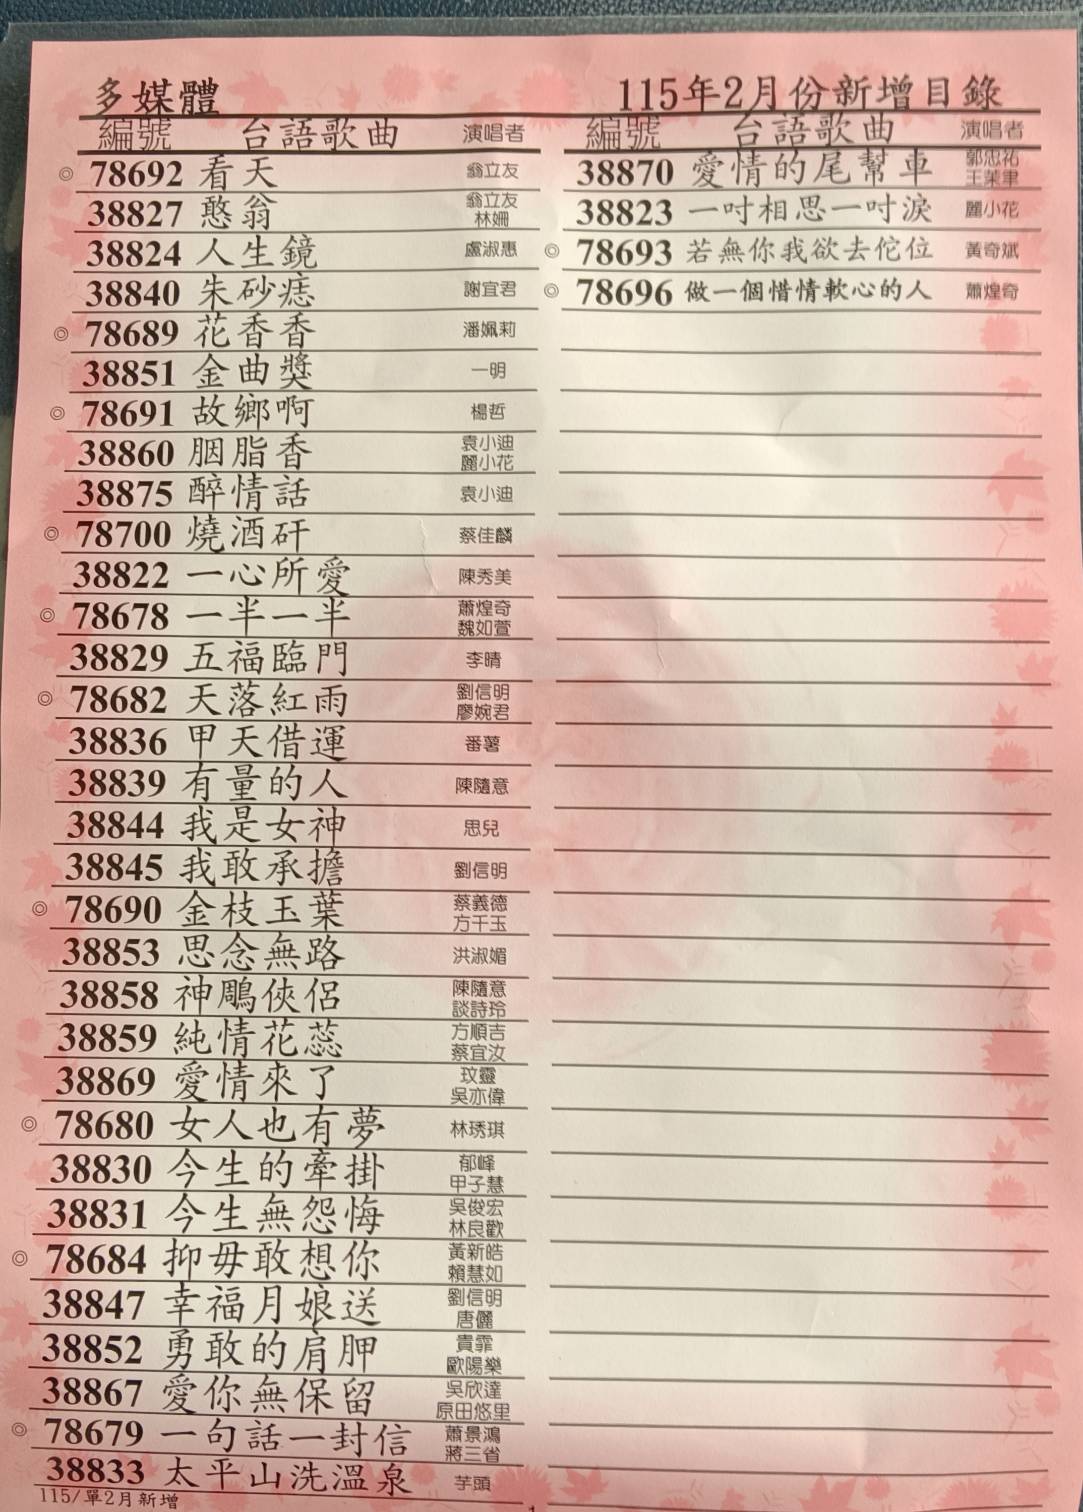 多媒體
115年2月份新增目錄
編號 台語歌曲 演唱者
◎ 78692 看天 翁立友
38827 憨翁 翁立友 林姍
38824 人生鏡 盧淑惠
38840 朱砂痣 謝宜君
◎ 78689 花香香 潘姵莉
38851 金曲獎 一明
◎ 78691 故鄉啊 楊哲
38860 胭脂香 袁小迪 麗小花
38875 醉情話 袁小迪
◎ 78700 燒酒矸 蔡佳麟
38822 一心所愛 陳秀美
◎ 78678 一半一半 蕭煌奇 魏如萱
38829 五福臨門 李晴
◎ 78682 天落紅雨 劉信明 廖婉君
38836 甲天借運 番薯
38839 有量的人 陳隨意
38844 我是女神 思兒
38845 我敢承擔 劉信明
◎ 78690 金枝玉葉 蔡義德 方千玉
38853 思念無路 洪淑媚
38858 神鵰俠侶 陳隨意 談詩玲
38859 純情花蕊 方順吉 蔡宜汝
38869 愛情來了 玟靈 吳亦偉
◎ 78680 女人也有夢 林琇琪
38830 今生的牽掛 郁峰 甲子慧
38831 今生無怨悔 吳俊宏 林良歡
◎ 78684 抑毋敢想你 黃新皓 賴慧如
38847 幸福月娘送 劉信明 唐儷
38852 勇敢的肩胛 貴霏 歐陽樂
38867 愛你無保留 吳欣達 原田悠里
◎ 78679 一句話一封信 蕭景鴻 蔣三省
38833 太平山洗溫泉 芋頭
115/單2月新增
編號 台語歌曲 演唱者
38870 愛情的尾幫車 郭忠祐 王茉聿
38823 一吋相思一吋淚 麗小花
◎ 78693 若無你我欲去佗位 黃奇斌
◎ 78696 做一個惜情軟心的人 蕭煌奇